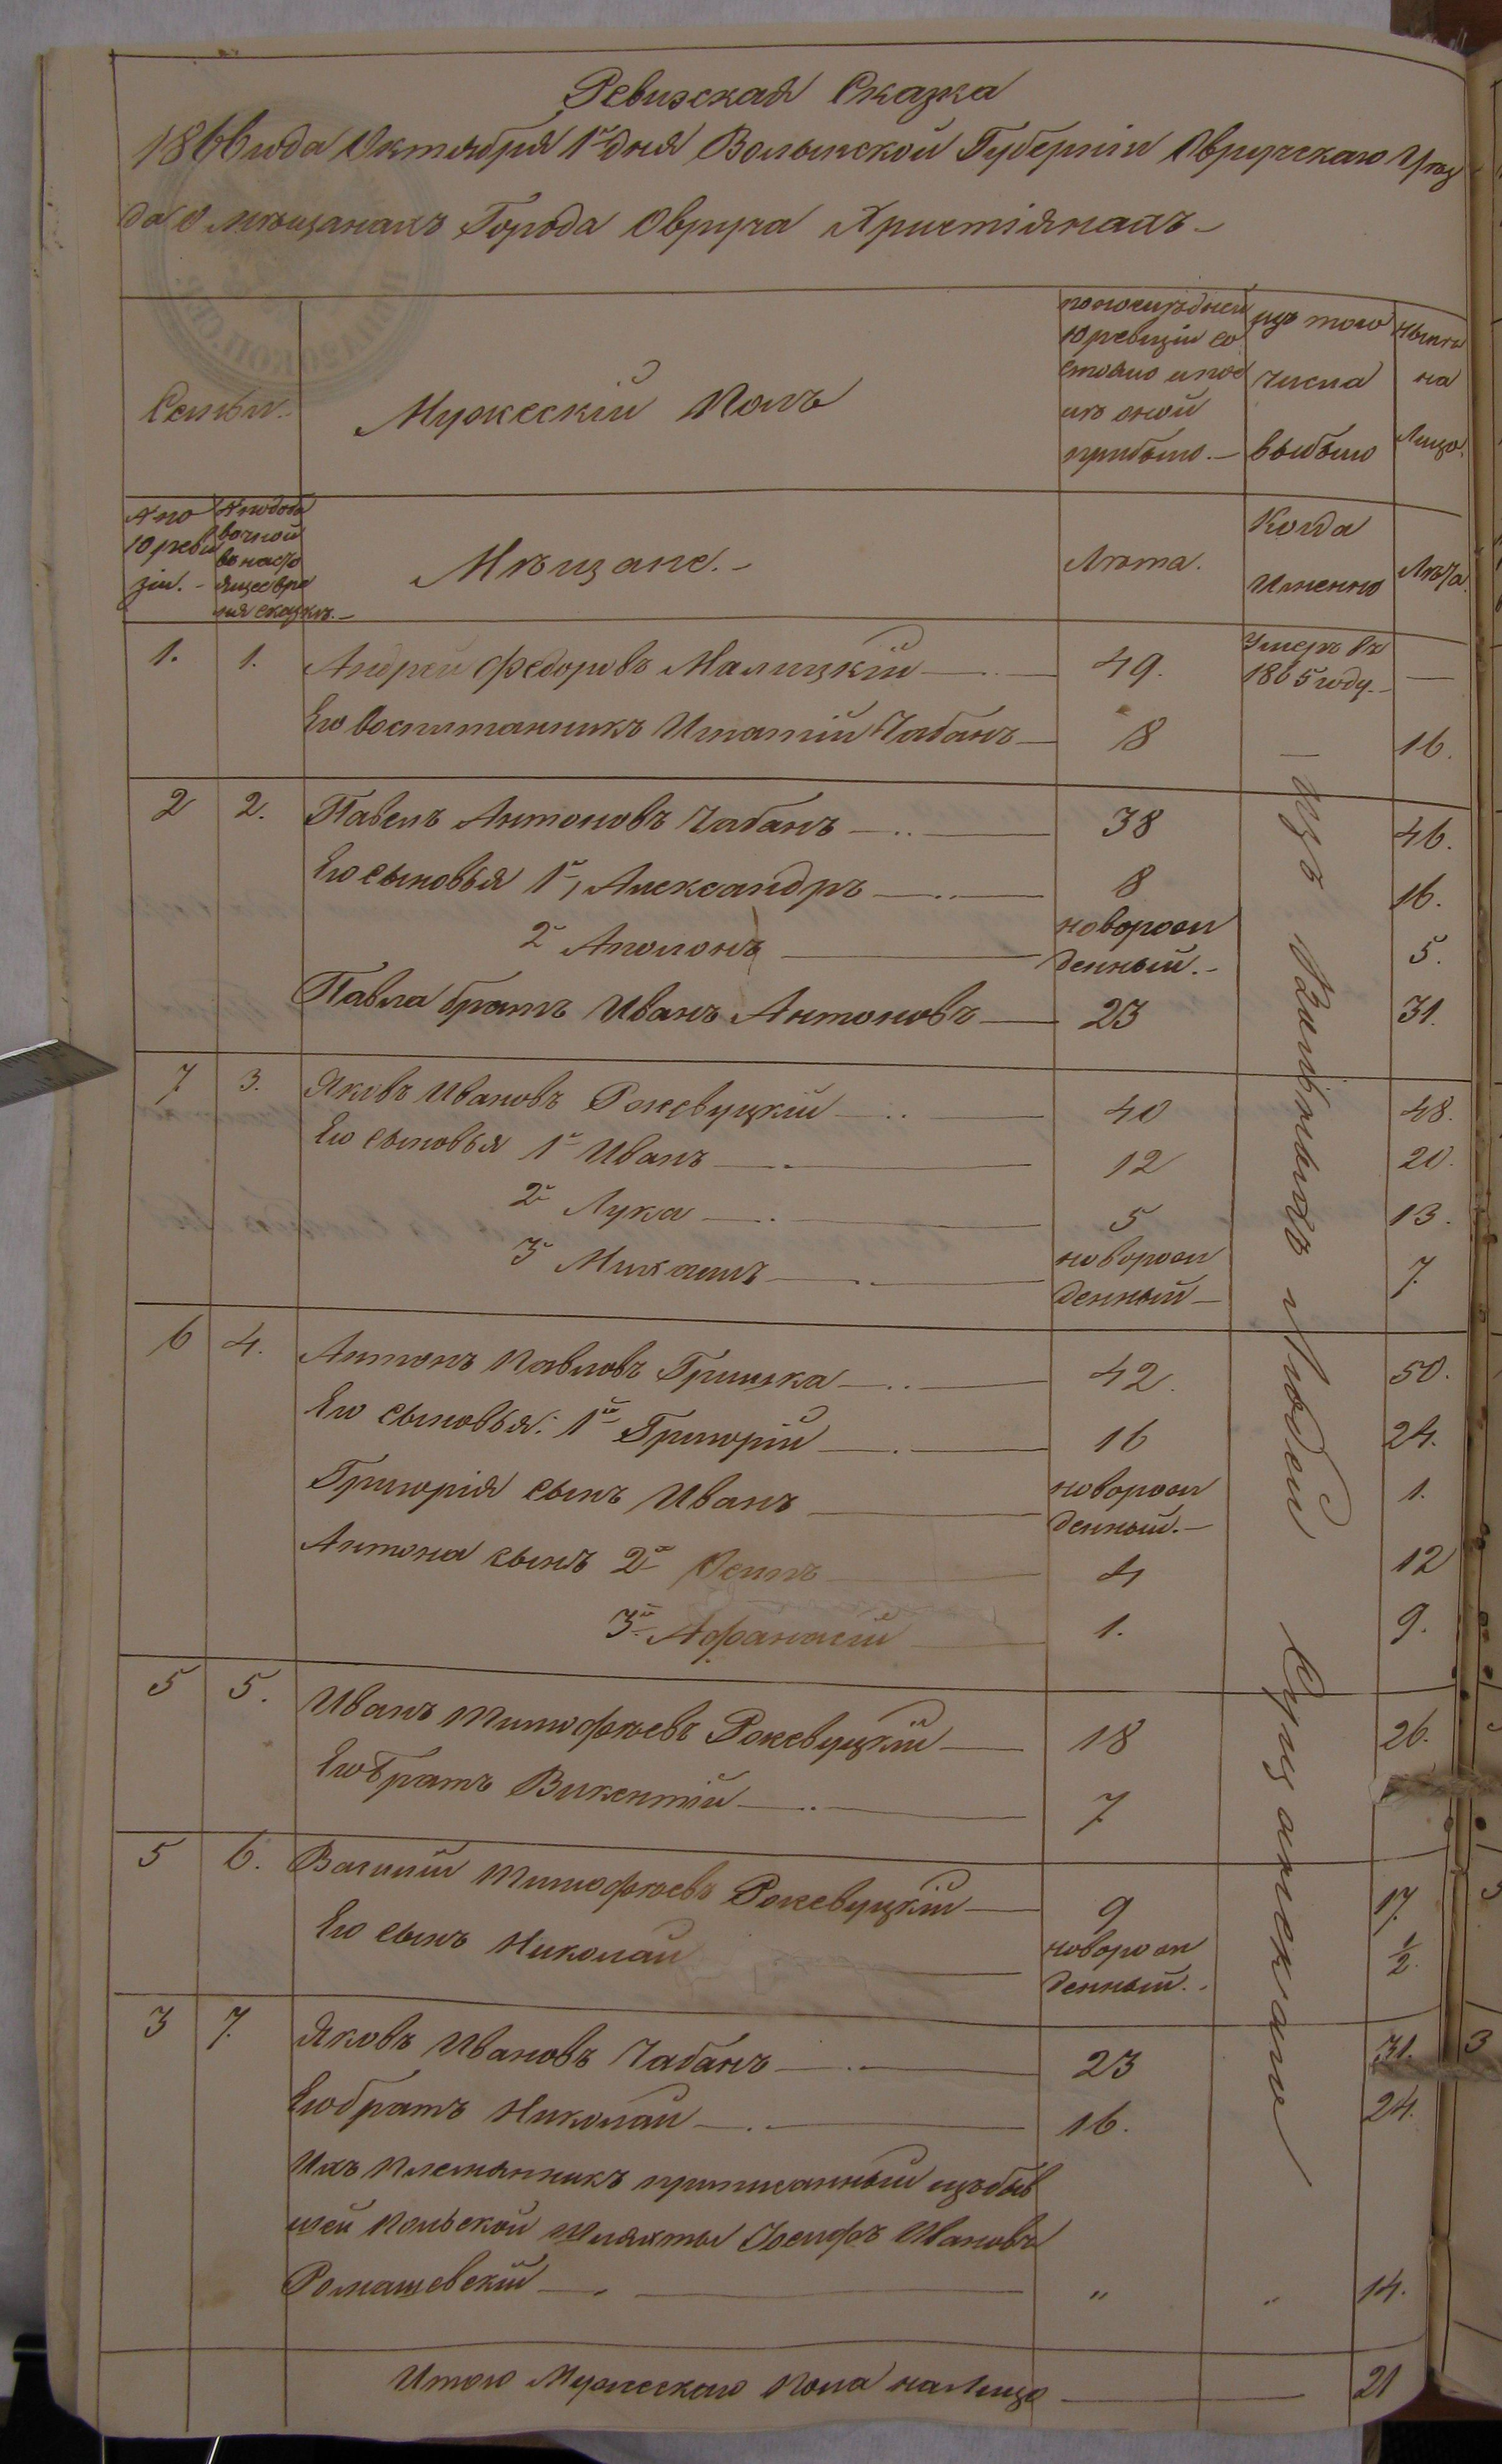 Ревизская Сказка
1866 года Октября 1го дня Волынской Губерніи Овручскаго Уѣз
да о мѣщанахъ Города Овруча Христіянахъ –
Семьи.
Мужескій Полъ
по послѣдней
10 ревизіи со
стояло и пос
лѣ оной
прибыло. –
изъ того
числа
выбыло
Нынѣ
на
Лицо.
№ по
10 реви
зіи. –
вочной
въ насто
ящее вре
мя сказкѣ. –
Мѣщане. –
Лѣта.
Когда
Именно
Лѣта.
1. 1. Андрей Федоровъ Малицкій 49. Умеръ въ 1865 году. – —
Его воспитанникъ Игнатій Чабанъ 8 16.
2 2. Павелъ Антоновъ Чабанъ 38 46.
Его сыновья 1й, Александръ 8 16.
2й Аполонъ новорож денный. – 5.
Павла братъ Иванъ Антоновъ 23 31.
7 3. Яковъ Ивановъ Рокевуцкій 40 48.
Его сыновья 1й Иванъ 12 20.
2й Лука 5 13.
3й Михаилъ новорож денный – 7.
6 4. Антонъ Павловъ Гришка 42. 50.
Его сыновья: 1й Григорій 16 24.
Григорія сынъ Иванъ новорож денный. – 1.
Антона сынъ 2й Осипъ 4 12
3й Афанасій 1. 9.
5 5. Иванъ Тимофѣевъ Рокевуцкій 18 26.
Его братъ Викентій 7.
5 6. Василій Тимофѣевъ Рокевуцкій 9 17.
Его сынъ Николай новорож денный. 1/2.
3 7. Яковъ Ивановъ Чабанъ 23 31.
Его братъ Николай 16. 24.
Ихъ племянникъ приписанный изъ быв
шей Польской шляхты Іосифъ Ивановъ
Ромашевскій „ „ 14.
Людей
Итого Мужескаго пола на Лицо 21